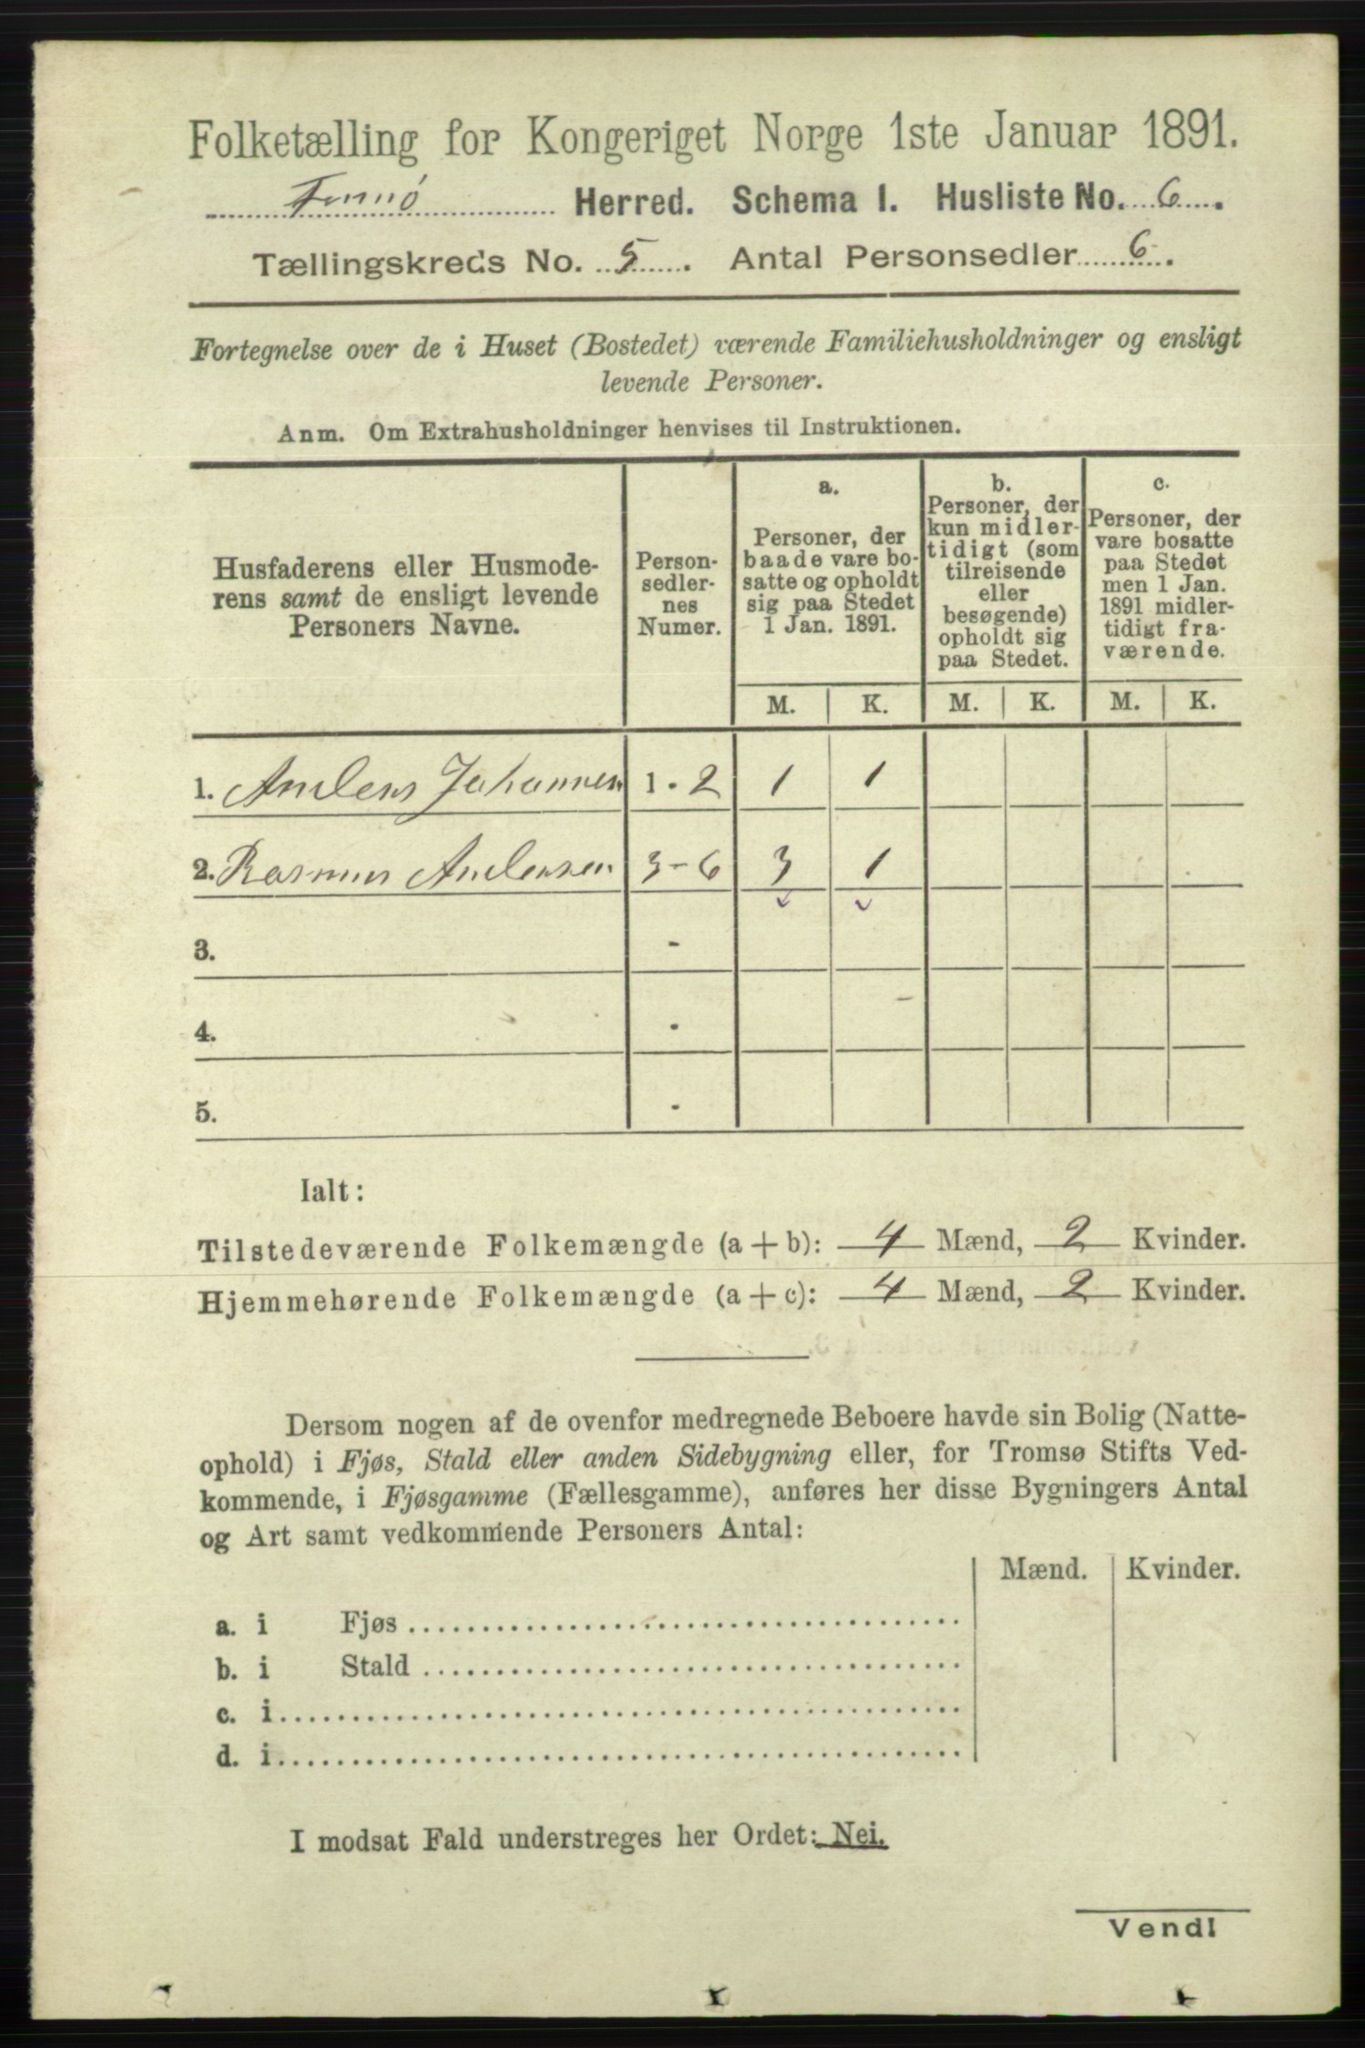 Folketælling for Kongeriget Norge 1ste Januar 1891.
Finnø Herred. Schema I. Husliste No. 6.
Tællingskreds No. 5. Antal Personsedler 6.
Fortegnelse over de i Huset (Bostedet) værende Familiehusholdninger og ensligt
levende Personer.
Anm. Om Extrahusholdninger henvises til Instruktionen.
Husfaderens eller Husmode-
rens samt de ensligt levende
Personers Navne.
Person-
sedler-
nes
Numer.
a.
Personer, der
baade vare bo-
satte og opholdt
sig paa Stedet
1 Jan. 1891.
b.
Personer, der
kun midler-
tidigt (som
tilreisende
eller
besøgende)
opholdt sig
paa Stedet.
c.
Personer, der
vare bosatte
paa Stedet
men 1 Jan.
1891 midler-
tidigt fra-
værende.
M. K. M. K. M. K.
1. Anders Johannesen 1-2 1 1
2. Rasmus Andersen 3-6 3 1
3. -
4. -
5. -
Ialt:
Tilstedeværende Folkemængde (a+b): 4 Mænd, 2 Kvinder.
Hjemmehørende Folkemængde (a+c): 4 Mænd, 2 Kvinder.
Dersom nogen af de ovenfor medregnede Beboere havde sin Bolig (Natte-
ophold) i Fjøs, Stald eller anden Sidebygning eller, for Tromsø Stifts Ved-
kommende, i Fjøsgamme (Fællesgamme), anføres her disse Bygningers Antal
og Art samt vedkommende Personers Antal:
Mænd. Kvinder.
a. i Fjøs
b. i Stald
c. i
d. i
I modsat Fald understreges her Ordet: Nei.
Vend!